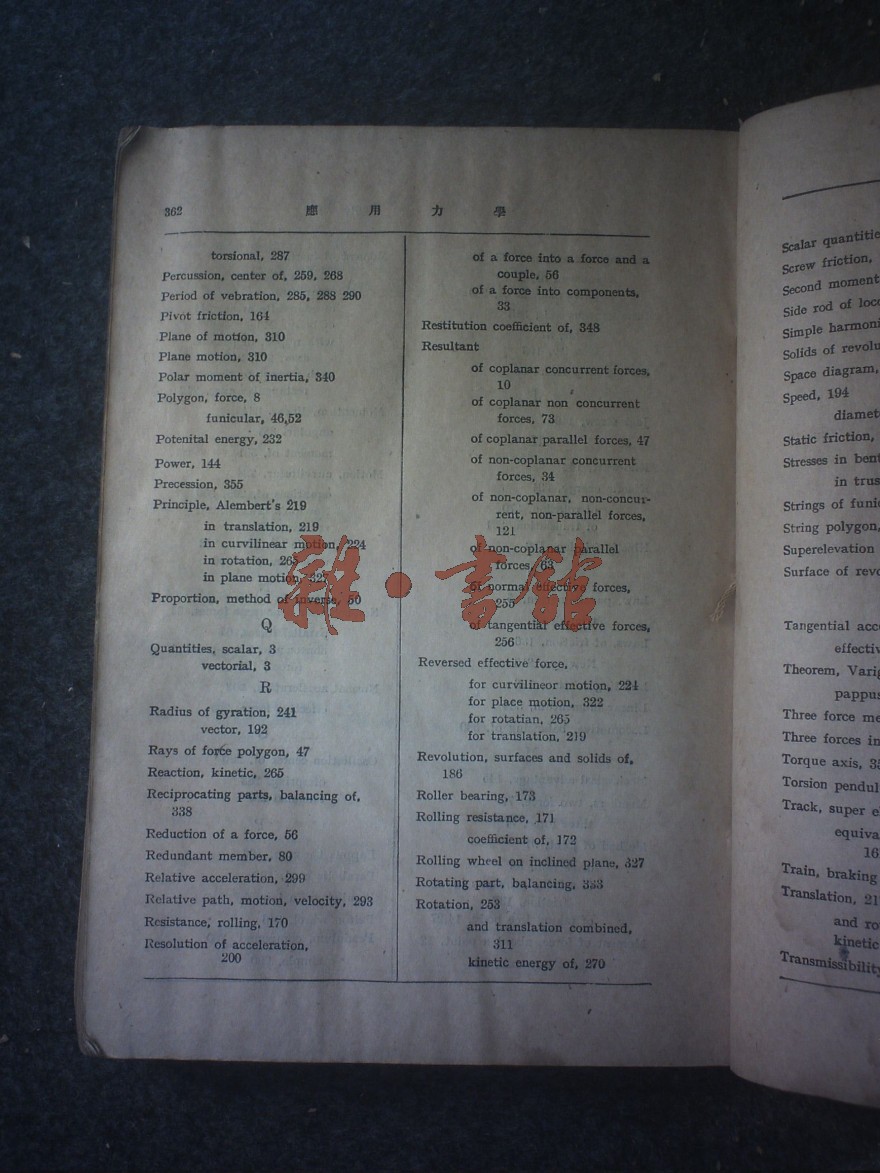 362
應 用 力 學
torsional, 287
Percussion, center of, 259, 268
Period of vebration, 285, 288 290
Pivot friction, 164
Plane of motion, 310
Plane motion, 310
Polar moment of inertia, 340
Polygon, force, 8
funicular, 46,52
Potenital energy, 232
Power, 144
Precession, 355
Principle, Alembert's 219
in translation, 219
in curvilinear motion, 224
in rotation, 265
in plane motion,
Proportion, method of inverse, 50
Q
Quantities, scalar, 3
vectorial, 3
R
Radius of gyration, 241
vector, 192
Rays of force polygon, 47
Reaction, kinetic, 265
Reciprocating parts, balancing of,
338
Reduction of a force, 56
Redundant member, 80
Relative acceleration, 299
Relative path, motion, velocity, 293
Resistance, rolling, 170
Resolution of acceleration,
200
of a force into a force and a
couple, 56
of a force into components,
33
Restitution coefficient of, 348
Resultant
of coplanar concurrent forces,
10
of coplanar non concurrent
forces, 73
of coplanar parallel forces, 47
of non-coplanar concurrent
forces, 34
of non-coplanar, non-concur-
rent, non-parallel forces,
121
of non-coplanar parallel
forces, 63
of normal effective forces,
255
of tangential effective forces,
256
Reversed effective force,
for curvilineor motion, 224
for place motion, 322
for rotatian, 265
for translation, 219
Revolution, surfaces and solids of,
186
Roller bearing, 173
Rolling resistance, 171
coefficient of, 172
Rolling wheel on inclined plane, 327
Rotating part, balancing, 333
Rotation, 253
and translation combined,
311
kinetic energy of, 270
雜·書館
Scalar quantitie
Screw friction,
Second moment
Side rod of loco
Simple harmoni
Solids of revolu
Space diagram,
Speed, 194
diamet
Static friction,
Stresses in bent
in trus
Strings of funi
String polygon,
Superelevation
Surface of revo
Tangential acc
effectiv
Theorem, Varig
pappus
Three force me
Three forces in
Torque axis, 35
Torsion pendul
Track, super e
equiva
16
Train, braking
Translation, 21
and ro
kinetic
Transmissibility